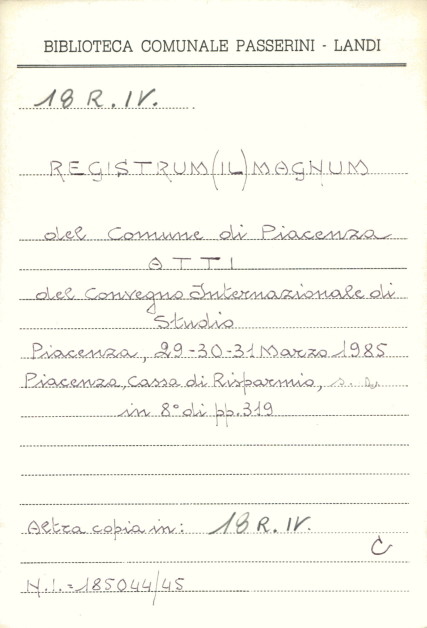 BIBLIOTECA COMUNALE PASSERINI - LANDI
18 R. IV.
REGISTRUM (IL) MAGNUM
del Comune di Piacenza
ATTI
del Convegno Internazionale di
Studio
Piacenza, 29-30-31 Marzo 1985
Piacenza, Cassa di Risparmio, s. d.
in 8° di pp. 319
Altra copia in: 18 R. IV.
C
N.I. = 185044/45